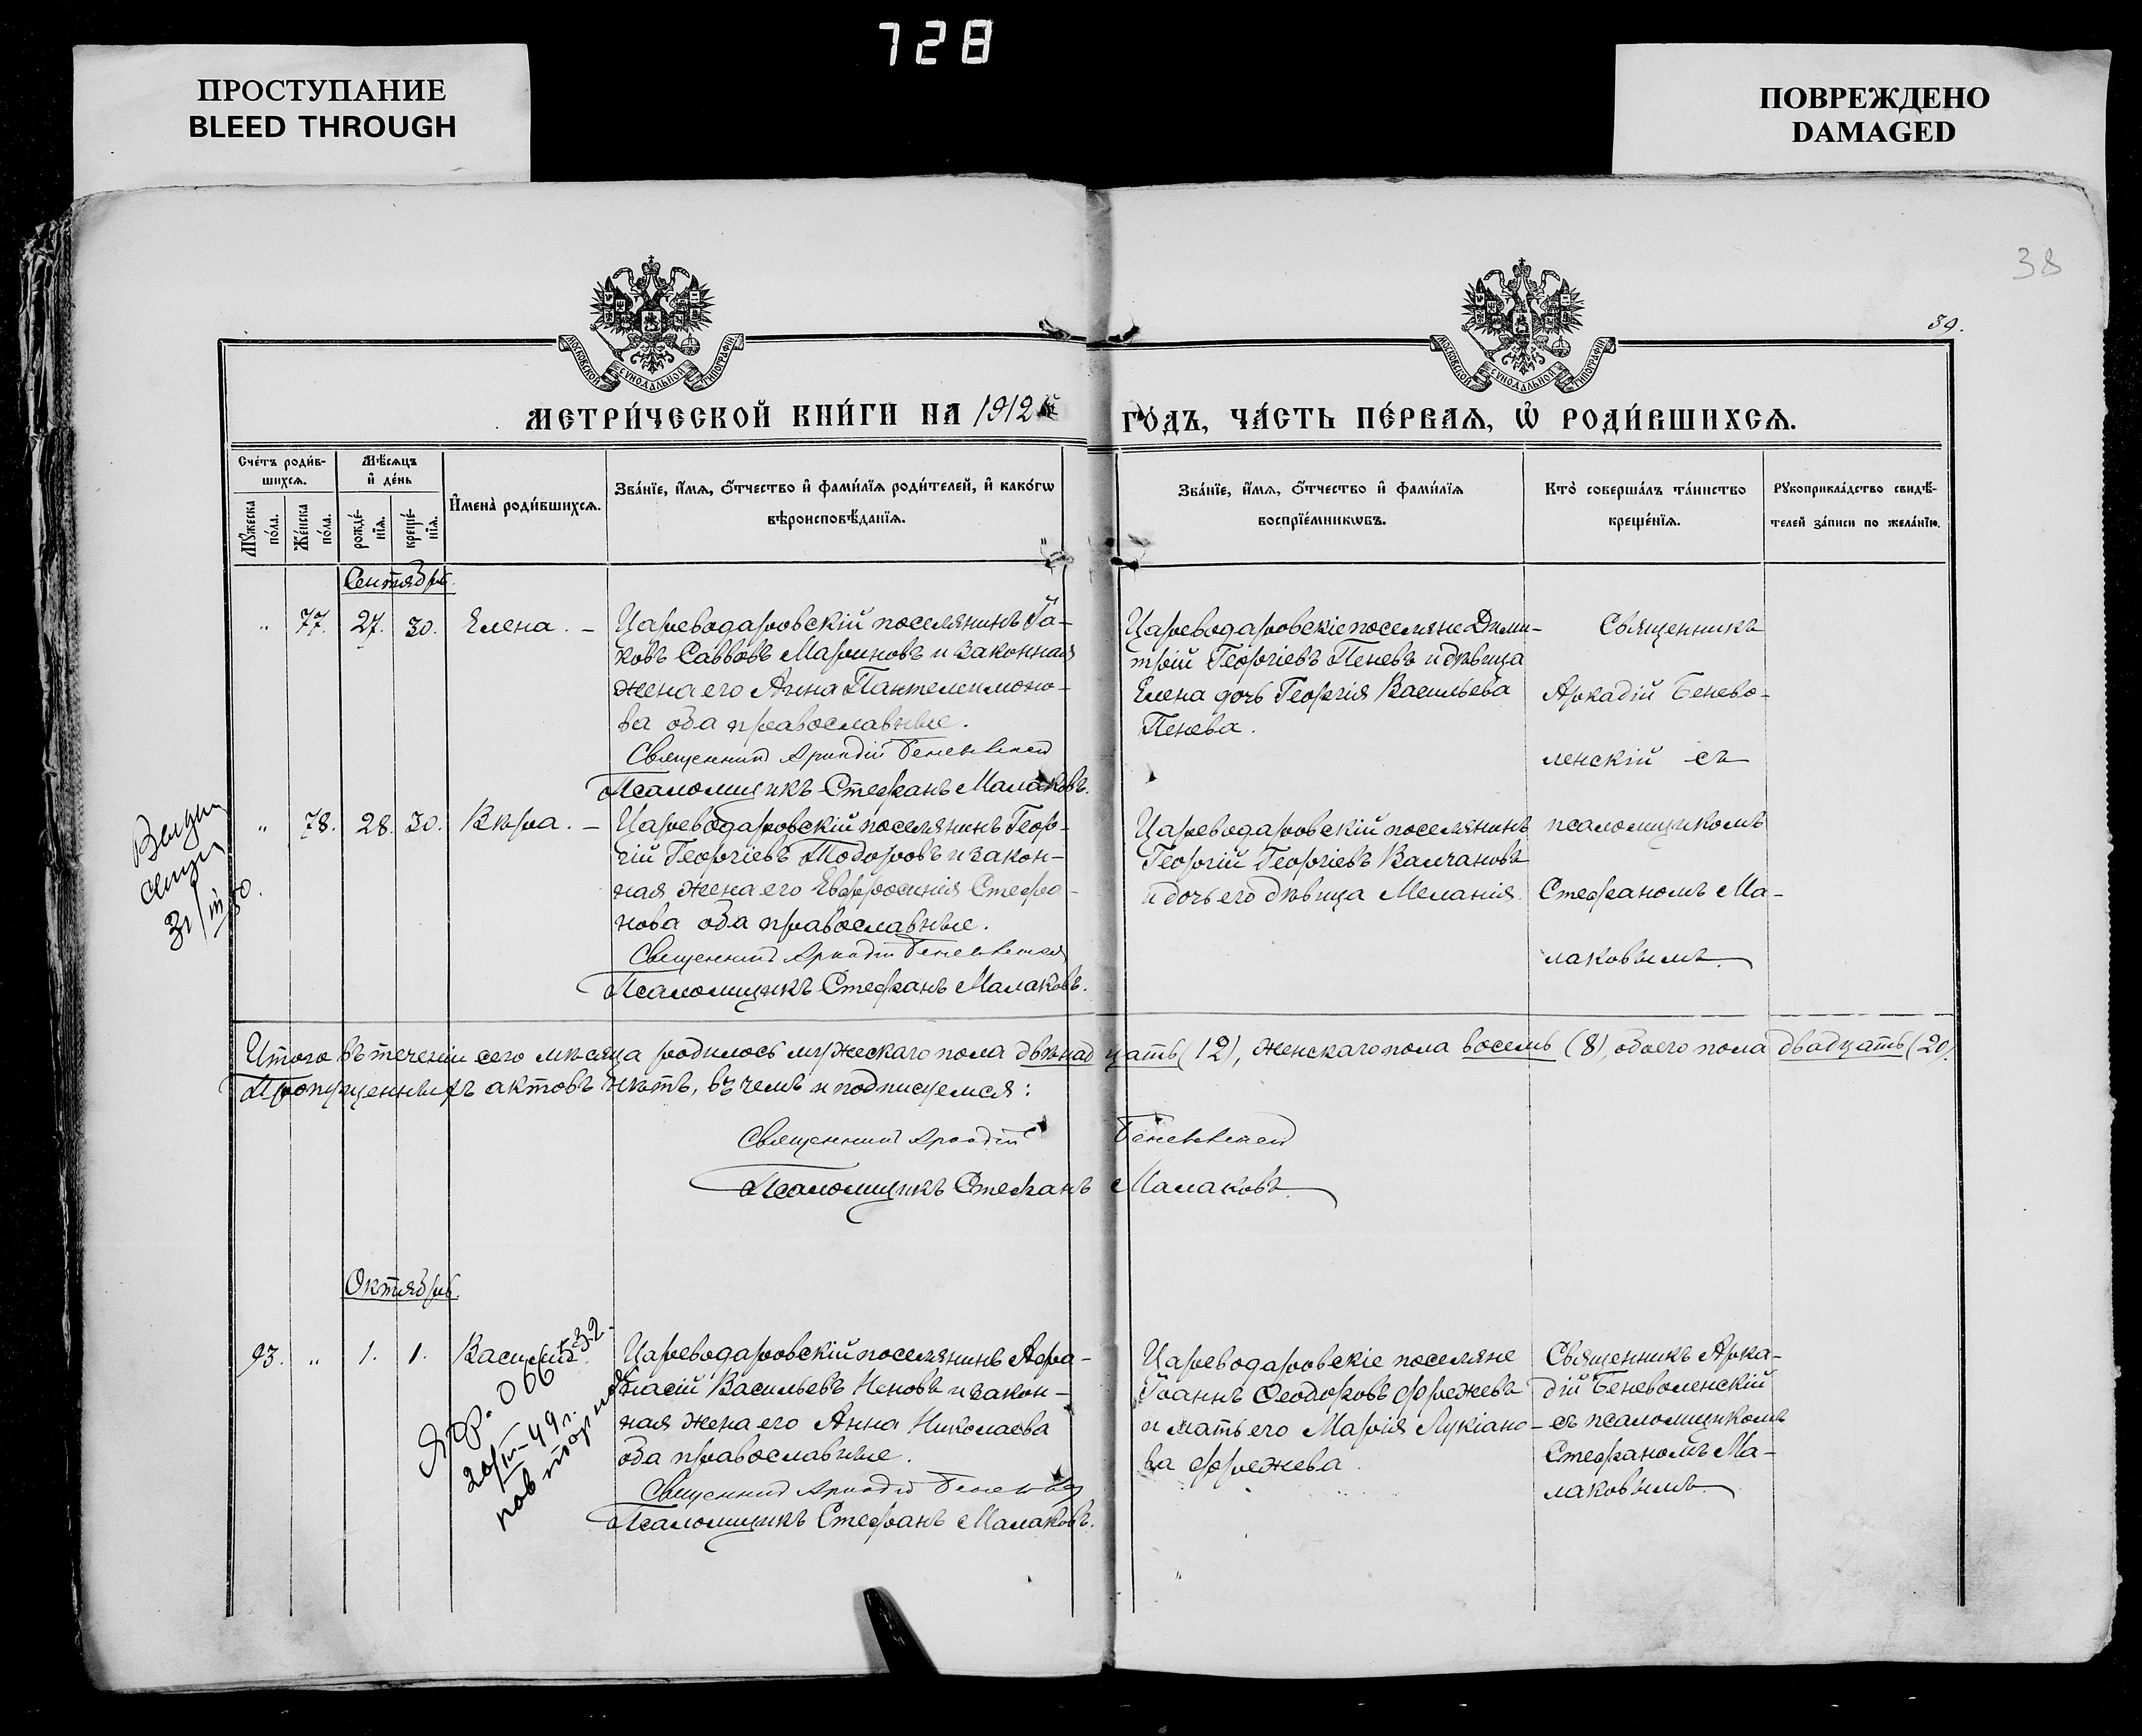 728
ПРОСТУПАНИЕ
BLEED THROUGH
ПОВРЕЖДЕНО
DAMAGED
38
39.
МОСКОВСКОЙ СѴНОДАЛЬНОЙ ТИПОГРАФІИ
МОСКОВСКОЙ СѴНОДАЛЬНОЙ ТИПОГРАФІИ
МЕТРИ́ЧЕСКОЙ КНИ́ГИ НА 1912
ГО́ДЪ, ЧА́СТЬ ПЕ́РВАѦ, Ѡ҆ РОДИ́ВШИХСѦ.
Сче́тъ роди́в-
шихсѧ.
Мѣ́сѧцъ
и҆ де́нь
Мꙋ́жеска
по́ла.
Же́нска
по́ла.
рожде́-
нїѧ.
креще́-
нїѧ.
И҆мена̀ роди́вшихсѧ.
Зва́нїе, и҆́мѧ, ѻ҆́тчество и҆ фами́лїѧ роди́телей, и҆ како́гѡ
вѣроисповѣ́данїѧ.
Зва́нїе, и҆́мѧ, ѻ҆́тчество и҆ фами́лїѧ
воспрїе́мникѡвъ.
Кто̀ соверша́лъ та́инство
креще́нїѧ.
Рꙋкоприкла́дство свидѣ́-
телей за́писи по жела́нїю.
Сентябрь.
" 77. 27. 30. Елена. –
Цареводаровскій поселянинъ Іа-
ковъ Саввовъ Мариновъ и законная
жена его Анна Пантелеимоно-
ва оба православные.
Священникъ Аркадій Беневоленскій
Псаломщикъ Стефанъ Малаковъ.
Цареводаровскіе поселяне Дими-
трій Георгіевъ Пеневъ и дѣвица
Елена дочь Георгія Васильева
Пенева.
Священникъ
Аркадій Бенево-
ленскій съ
31/III 50.
" 78. 28. 30. Вѣра. –
Цареводаровскій поселянинъ Геор-
гій Георгіевъ Тодоровъ и закон-
ная жена его Евфросинія Стефа-
нова оба православные.
Священникъ Аркадій Беневоленскій
Псаломщикъ Стефанъ Малаковъ.
Цареводаровскій поселянинъ
Георгій Георгіевъ Валчановъ
и дочь его дѣвица Меланія.
псаломщикомъ
Стефаномъ Ма-
лаковымъ.
Итого въ теченіи сего мѣсяца родилось мужескаго пола двѣнадцать (12), женскаго пола восемь (8), обоего пола двадцать (20).
Пропущенныхъ актовъ нѣтъ, въ чемъ и подписуемся:
Священникъ Аркадій Беневоленскій
Псаломщикъ Стефанъ Малаковъ.
Октябрь.
93. " 1. 1. Василій.
20/IV-49 г.
повторно
Цареводаровскій поселянинъ Афа-
насій Васильевъ Неновъ и закон-
ная жена его Анна Николаева
оба православные.
Священникъ Аркадій Беневоленскій
Псаломщикъ Стефанъ Малаковъ.
Цареводаровскіе поселяне
Іоаннъ Ѳеодоровъ Фрежевъ
и мать его Марія Лукіано-
ва Фрежева.
Священникъ Арка-
дій Беневоленскій
съ псаломщикомъ
Стефаномъ Ма-
лаковымъ.